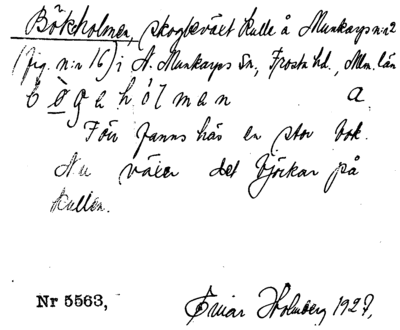 Bökholmen, skogbeväxt kulle å Munkarps n:r 2
(fig. n:r 16) i N. Munkarps Sn., Frosta hd., Mlm. län
b ò̱ g a h ó l m a n a.
Förr fanns här en stor bok.
Nu växer det björkar på
kullen.
Nr 5563, Einar Holmberg 1927,